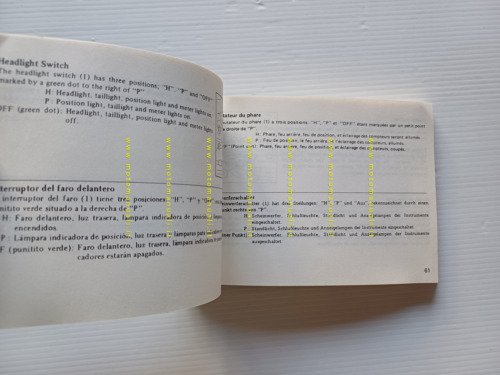 Headlight Switch
The headlight switch (1) has three positions; "H", "P" and "OFF"
marked by a green dot to the right of "P"
H: Headlight, taillight, position light and meter lights on.
P: Position light, taillight and meter lights on.
OFF (green dot): Headlight, taillight, position light and meter lights
off.
nterruptor del faro delantero
interruptor del faro (1) tiene tres posiciones, "H", "P" y
punitito verde situado a la derecha de "P".
H: Faro delantero, luz trasera, lámpara indicadora de posición,
encendidos.
P: Lámpara indicadora de posición, luz trasera y lámparas para
F (punitito verde): Faro delantero, luz trasera, lámpara indicadora
cadores estarán apagados.
tateur du phare
utateur du phare (1) a trois positions: "H", "P" et "OFF" étant marquées par un petit point
la droite de "P".
H: Phare, feu arrière, feu de position, et éclairage des compteurs seront allumés.
P: Feu de position, le feu arrière, et éclairage des compteurs, allumés.
(Point vert): Phare, feu arrière, feu de position, et éclairage des compteurs, coupés.
einwerferschalter
(1) hat drei Stellungen: "H", "P" und "Aus", gekennzeichnet durch einen
punkt rechts von "P".
H: Scheinwerfer, Schlußleuchte, Standlicht und Anzeigelampen der Instrumente
eingeschaltet
P: Standlicht, Schlußleuchte und Anzeigelampen der Instrumente
eingeschaltet.
Scheinwerfer, Schlußleuchte, Standlicht und Anzeigelampen der Instrumente
ausgeschaltet.
61